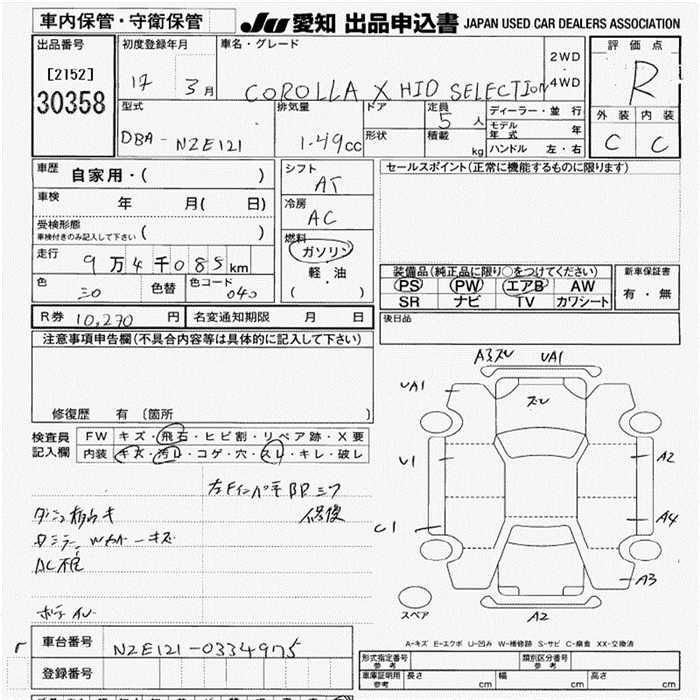 車内保管・守衛保管
JU 愛知 出品申込書 JAPAN USED CAR DEALERS ASSOCIATION
出品番号
[2152]
30358
初度登録年月
17 3月
車名・グレード
COROLLA X HID SELECTION
2WD
・
4WD
評価点
R
外装 内装
C C
型式
DBA- NZE121
排気量
1.49cc
ドア
形状
定員
5人
積載
kg
ディーラー・並行
モデル年式 年
ハンドル 左・右
車歴
自家用・( )
車検
年 月( 日)
受検形態
車検付きのみ記入して下さい ( )
走行
9万4千085km
色
色替
色コード
040
シフト
AT
冷房
AC
燃料
ガソリン
軽・油
( )
セールスポイント(正常に機能するものに限ります)
装備品(純正品に限り○をつけてください)
PS PW エアB AW
SR ナビ TV カワシート
新車保証書
有・無
R券 10,270 円
名変通知期限 月 日
後日品
注意事項申告欄(不具合内容等は具体的に記入して下さい)
修復歴 有 〔箇所 〕
検査員
記入欄
FW キズ・飛石・ヒビ割・リペア跡・X要
内装 キズ・汚レ・コゲ・穴・スレ・キレ・破レ
AC不良
A3ズレ UA1
UA1
ズレ
U1
A2
C1
A4
A3
スペア
A2
A-キズ E-エクボ U-凹み W-補修跡 S-サビ C-腐食 XX-交換済
車台番号
NZE121-0334975
登録番号
形式指定番号
参考
類別区分番号
参考
車庫証明用
参考
長さ cm
幅 cm
高さ cm